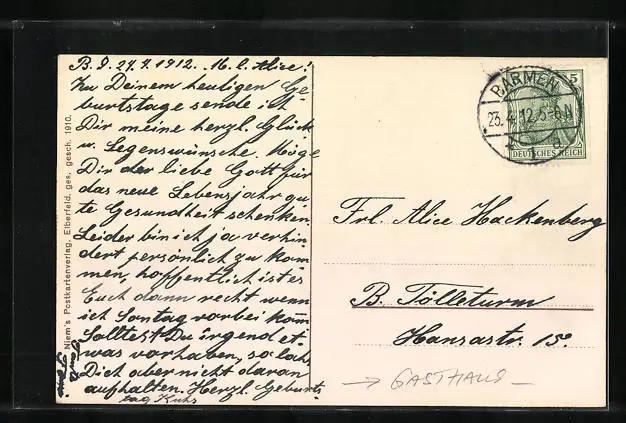 B. d. 24. 4. 1912. M. l. Alice!
Zu Deinem heutigen Ge-
burtstage sende ich
Dir meine herzl. Glück
u. Segenswünsche. Möge
Dir der liebe Gott für
das neue Lebensjahr gu
te Gesundheit schenken
Leider bin ich ja verhin
dert persönlich zu kom
men, hoffentlich ist es
Euch dann recht wenn
ich Sontag vorbei kom
Solltest Du irgend et-
was vorhaben, so lass
Dich aber nicht daran
aufhalten. Herzl. Geburts
tag Kuhs
Niem's Postkartenverlag, Elberfeld. ges. gesch. 1910.
BARMEN
23. 4. 12. 5-6 N
5
DEUTSCHES REICH
Frl. Alice Hackenberg
B. Tölleturm
Hansastr. 15.
→ GASTHAUS -